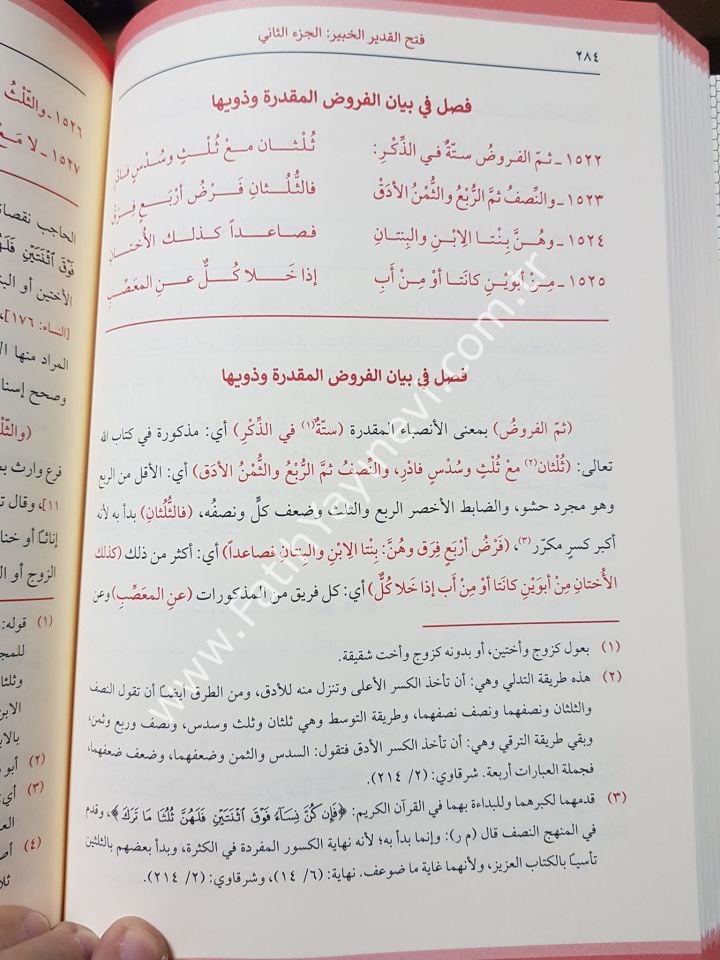 فتح القدير الخبير: الجزء الثاني
٢٨٤
فصل في بيان الفروض المقدرة وذويها
١٥٢٢ - ثمّ الفروضُ ستةٌ في الذِّكْرِ: ثُلْثَان مَعْ ثُلْثٍ وسُدْسٍ فادْرِ
١٥٢٣ - والنِّصفُ ثمَّ الرُّبْعُ والثُّمْنُ الأدَقْ فالثُّلُثانِ فَرْضُ أرْبَعٍ فِرَقْ
١٥٢٤ - وهُنَّ بِنْتا الاِبْنِ والبِنتانِ فصاعداً كذلك الأُختانِ
١٥٢٥ - مِنْ أبوَيْنِ كانَتا أوْ مِنْ أَبِ إذا خَلا كُلٌّ عنِ المعَصِّبِ
فصل في بيان الفروض المقدرة وذويها
(ثمّ الفروضُ) بمعنى الأنصباء المقدرة (ستةٌ(١) في الذِّكْرِ) أي: مذكورة في كتاب الله
تعالى: (ثُلْثان(٢) معْ ثُلْثٍ وسُدْسٍ فادْرِ، والنِّصفُ ثمَّ الرُّبْعُ والثُّمْنُ الأدَق) أي: الأقل من الربع
وهو مجرد حشو، والضابط الأخصر الربع والثلث وضعف كلٍّ ونصفُه، (فالثُّلُثانِ) بدأ به لأنه
أكبر كسرٍ مكرّر(٣)، (فَرْضُ أرْبَعٍ فِرَقٍ وهُنَّ: بِنْتا الاِبْنِ والبِنتانِ فصاعداً) أي: أكثر من ذلك (كذلك
الأُختان مِنْ أبوَيْنِ كانَتا أوْ مِنْ أب إذا خَلا كُلٌّ) أي: كل فريق من المذكورات (عنِ المعَصِّبِ) وعن
(١) بعول كزوج وأختين، أو بدونه كزوج وأخت شقيقة.
(٢) هذه طريقة التدلي وهي: أن تأخذ الكسر الأعلى وتنزل منه للأدق، ومن الطرق أيضًا أن تقول النصف
والثلثان ونصفهما ونصف نصفهما، وطريقة التوسط وهي ثلثان وثلث وسدس، ونصف وربع وثمن،
وبقي طريقة الترقي وهي: أن تأخذ الكسر الأدق فتقول: السدس والثمن وضعفهما، وضعف ضعفهما،
فجملة العبارات أربعة. شرقاوي: (٢/ ٢١٤).
(٣) قدمهما لكبرهما وللبداءة بهما في القرآن الكريم: ﴿فَإِن كُنَّ نِسَآءً فَوْقَ ٱثْنَتَيْنِ فَلَهُنَّ ثُلُثَا مَا تَرَكَ﴾، وقدم
في المنهج النصف قال (م ر): وإنما بدأ به؛ لأنه نهاية الكسور المفردة في الكثرة، وبدأ بعضهم بالثلثين
تأسيًا بالكتاب العزيز، ولأنهما غاية ما ضوعف. نهاية: (٦/ ١٤)، وشرقاوي: (٢/ ٢١٤).
١٥٢٦ - والثّلْثُ
١٥٢٧ - لا مَعْ
الحاجب نقصا
فَوْقَ ٱثْنَتَيْنِ
الأختين أو
[النساء: ١٧٦]،
المراد منها
وصحح
فرع وارث
١١]، وقال
إناثًا أو
الزوج أو
(١) قوله:
وثلثا
الابن
(٢) أبو
(٣) أي:
(٤)
www.FatihYayinevi.com.tr